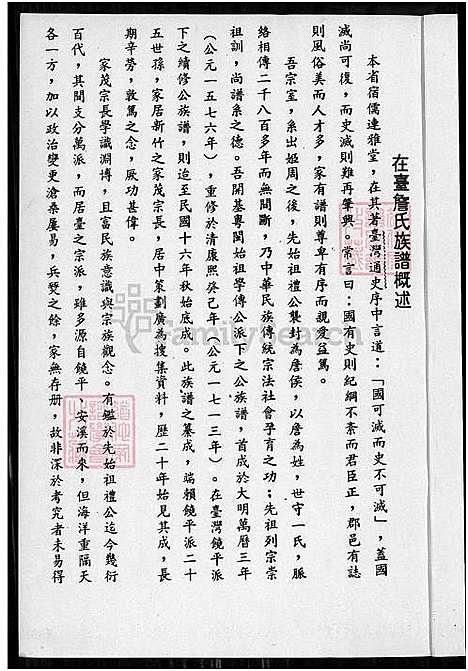 在臺詹氏族譜概述
本省宿儒連雅堂，在其著臺灣通史序中言道：「國可滅而史不可滅」，蓋國
滅尚可復，而史滅則難再肇興。常言曰：國有史則紀綱不紊而君臣正，郡邑有誌
則風俗美而人才多，家有譜則尊卑有序而親愛益篤。
吾宗室，系出姬周之後，先始祖禮公襲封為詹侯，以詹為姓，世守一氏，脈
絡相傳二千八百多年而無間斷，乃中華民族傳統宗法社會孕育之功；先祖列宗崇
祖訓，尚譜系之德。吾開基粵閩始祖學傳公派下之公族譜，首成於大明萬曆三年
（公元一五七六年），重修於清康熙癸己年（公元一七一三年）。在臺灣饒平派
下之續修公族譜，則迨至民國十六年秋始底成。此族譜之纂成，端賴饒平派二十
五世孫，家居新竹之家茂宗長，居中策劃廣為搜集資料，歷二十年始見其成，長
期辛勞，敦篤之念，厥功甚偉。
家茂宗長學識淵博，且富民族意識與宗族觀念。有鑑於先始祖禮公迄今幾衍
百代，其間支分萬派，而居臺之宗派，雖多源自饒平、安溪而來，但海洋重隔天
各一方，加以政治變更滄桑屢易，兵燹之餘，家無存册，故非深於考究者未易得
FamilySearch